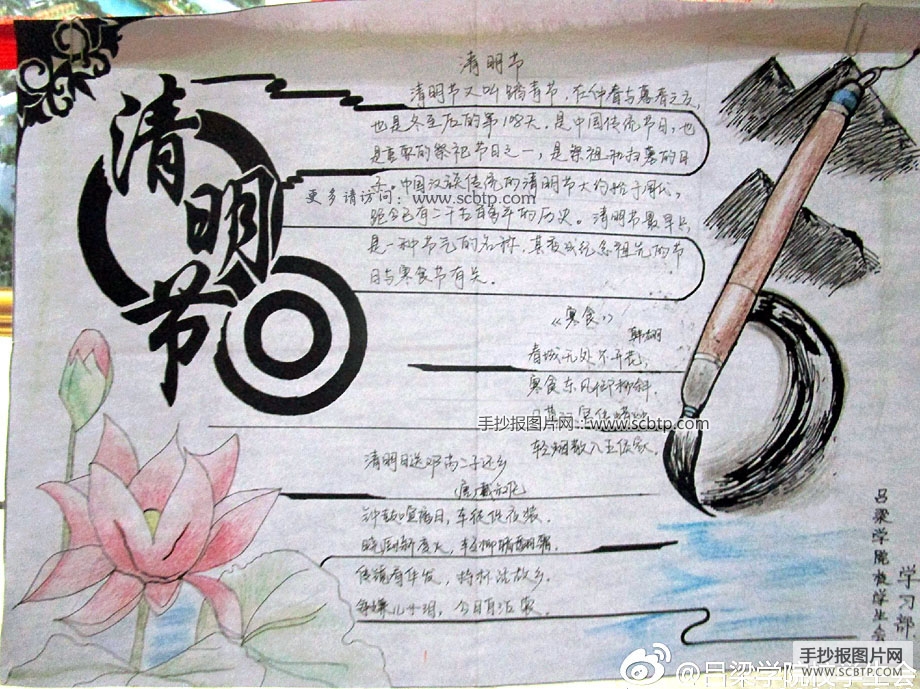 清明节
清明节
清明节又叫踏青节，在仲春与暮春之交，
也是冬至后的第108天。是中国传统节日，也
是重要的祭祀节日之一，是祭祖和扫墓的日
子。中国汉族传统的清明节大约始于周代，
更多请访问：www.scbtp.com
距今已有二千五百多年的历史。清明节最早只
是一种节气的名称，其变成纪念祖先的节
日与寒食节有关。
《寒食》
韩翃
春城无处不开花，
寒食东风御柳斜。
手抄报图片网：www.scbtp.com
轻烟散入五侯家。
清明日送邓芮二子还乡
钟鼓喧离日，车徒促夜装。
传镜看华发，持杯话故乡。
每嫌儿女泪，今日自沾裳。
吕梁学院校学生会
学习部
@吕梁学院校学生会
手抄报图片网
WWW.SCBTP.COM